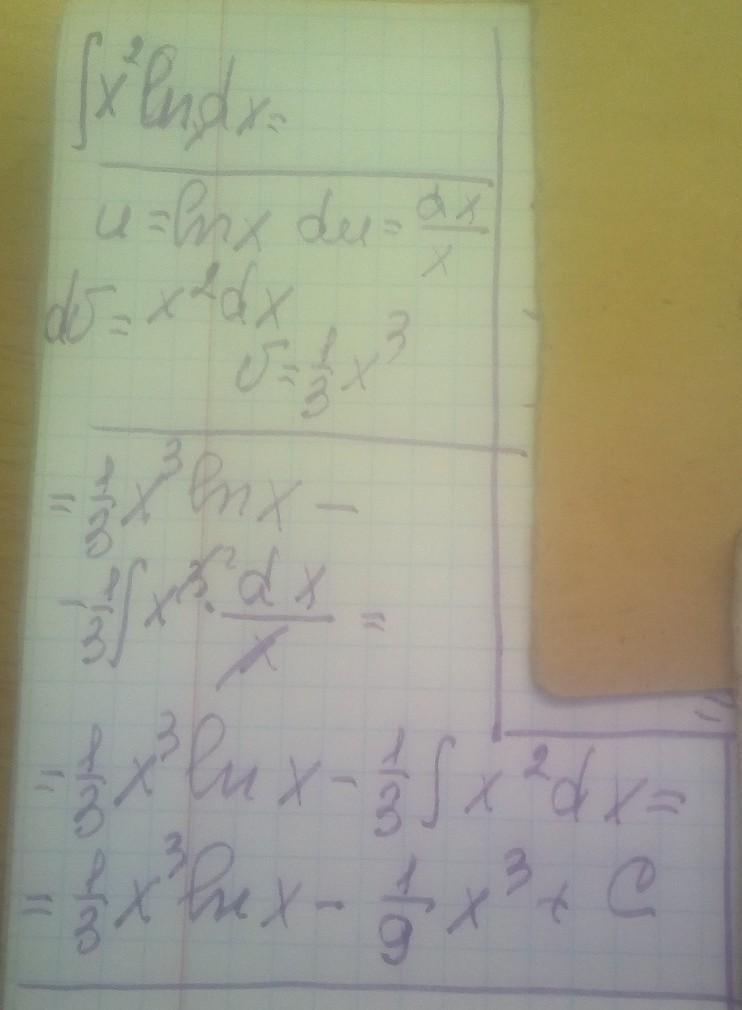 ∫x² ln x dx =
u = ln x du = dx/x
dv = x² dx
v = 1/3 x³
= 1/3 x³ ln x −
− 1/3 ∫ x³² · dx/x =
= 1/3 x³ ln x − 1/3 ∫ x² dx =
= 1/3 x³ ln x − 1/9 x³ + C